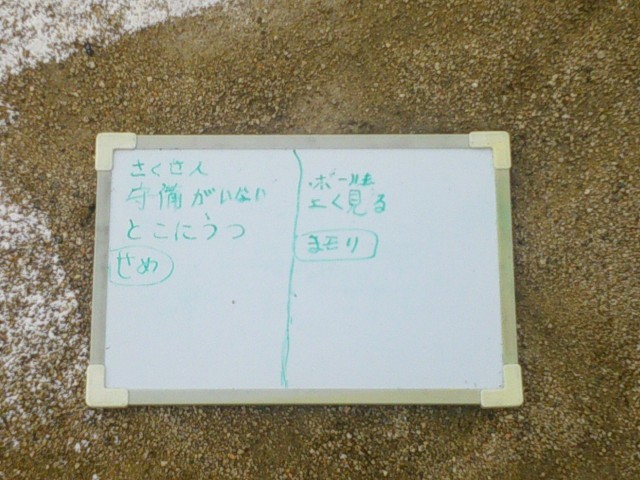 さくせん
守備がいない
とこにうつ
せめ
ボールを
よく見る
まモり